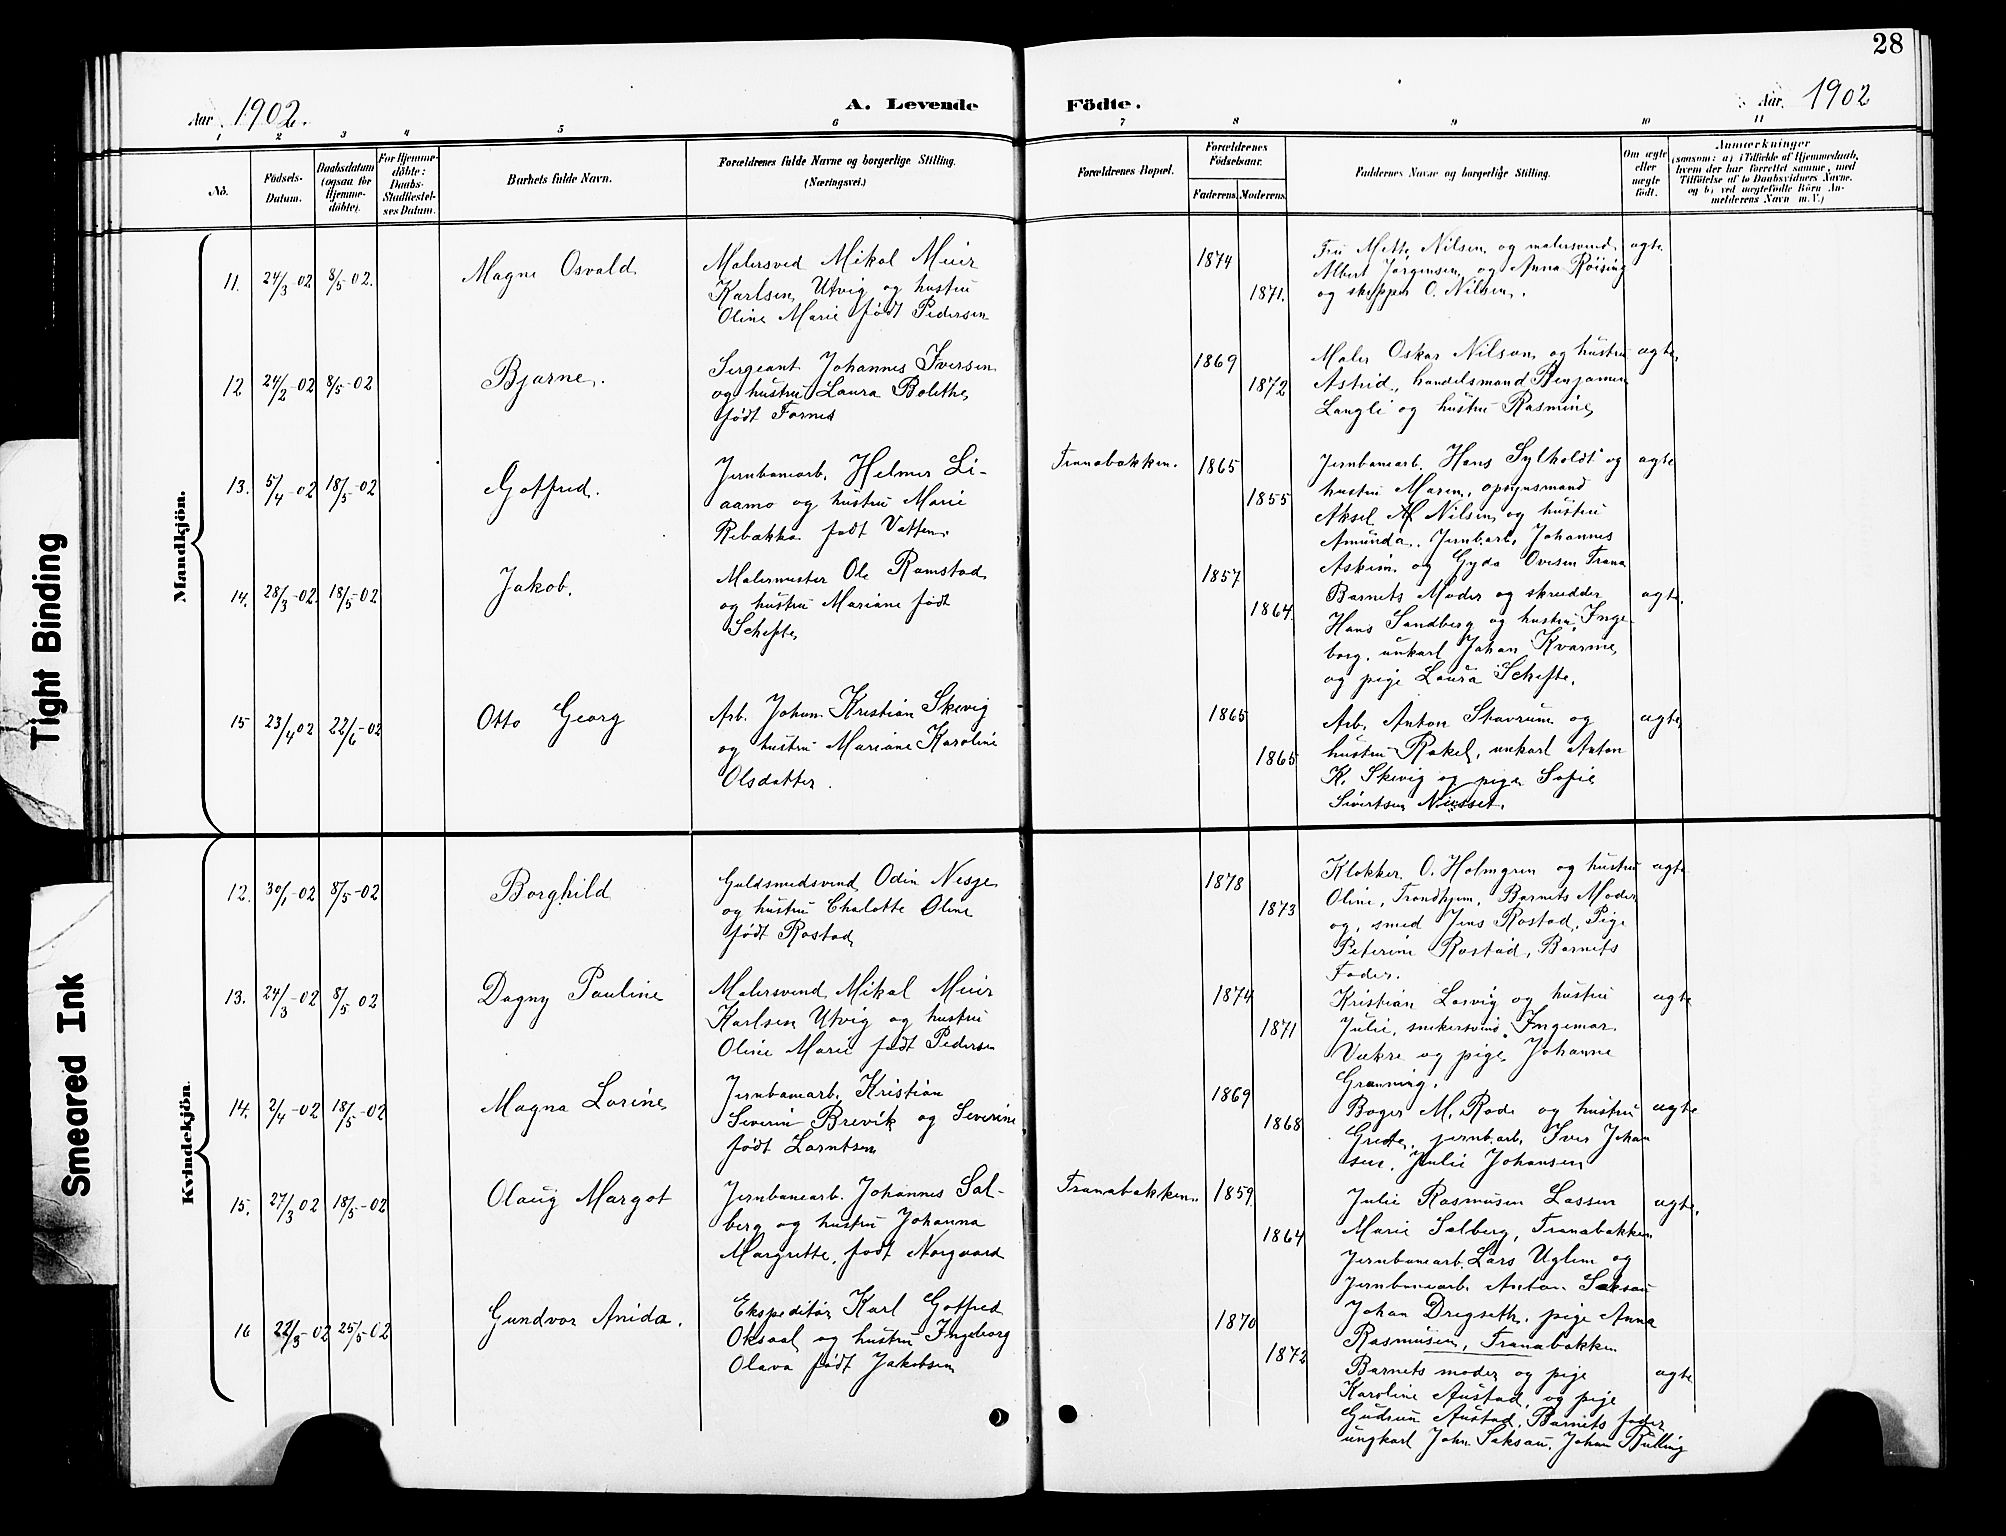 28
Aar 1902.
A. Levende
Födte.
Aar 1902
1
2
3
4
5
6
7
8
9
10
11
No.
Födsels-
Datum.
Daabsdatum
(ogsaa for
Hjemme-
döbte).
For Hjemme-
döbte:
Daabs-
Stadfæstel-
ses Datum.
Barnets fulde Navn.
Forældrenes fulde Navne og borgerlige Stilling.
(Næringsvei.)
Forældrenes Bopæl.
Forældrenes
Födselsaar.
Faderens.
Moderens.
Faddernes Navne og borgerlige Stilling.
Om ægte
eller
uægte
födt.
Anmærkninger
(saasom: a) i Tilfælde af Hjemmedaab,
hvem der har forrettet samme, med
Tilföielse af to Daabsvidners Navne.
og b) ved uægtefödte Börn An-
melderens Navn m. V.)
Mandkjön.
11. 24/3-02 8/5-02. Magne Osvald
Malersved Mikal Meier
Karlsen Utvig og hustru
Oline Marie født Pedersen
1874
1871.
Fru Mette Nilsen og malersvend
Albert Jørgensen og Anna Röising
og skipper O. Nilsen.
ægte
12 24/2-02 8/5-02 Bjarne.
Sergeant Johannes Iversen
og hustru Laura Bolethe
født Fornes
1869
1872
Maler Oskar Nilsen og hustru
Astrid, handelsmand Benjamin
Langli og hustru Rasmine
ægte
13. 5/4-02 18/5-02 Gotfred.
Jernbanearb. Helmer Li-
aamo og hustru Marie
Rebækka født Vatten.
Tranabakken.
1865
1855
Jernbanearb. Hans Sylholdt og
hustru Maren, opsynsmand
Aksel M Nilsen og hustru
Amunda, Jernb.arb. Johannes
Askim og Gyda Ovesen Trana
ægte
14. 28/3-02. 18/5-02 Jakob.
Malermester Ole Ramstad
og hustru Mariane født
Schefte
1857
1864.
Barnets Moder og skrædder
Hans Sandberg og hustru Inge-
borg, unkarl Johan Kvarme
og pige Laura Schefte.
ægte.
15 23/4 02 22/6-02 Otto Georg
Arb. Johan Kristian Skevig
og hustru Mariane Karoline
Olsdatter.
1865
1865
Arb. Anton Stavrum og
hustru Rakel, unkarl Anton
K. Skevig og pige Sofie
Sivertsen Niesset.
ægte
Kvindekjön.
12. 30/1-02 8/5-02 Borghild
Guldsmedsvend Odin Nesje
og hustru Chalotte Oline
født Rostad
1878
1873
Klokker O. Holmgren og hustru
Oline, Trondhjem, Barnets Moder
og, smed Jens Rostad, Pige
Peterine Rostad, Barnets
Fader.
ægte
13. 24/3-02 8/5 02 Dagny Pauline
Malersvend Mikal Meier
Karlsen Utvig og hustru
Oline Marie født Pedersen
1874
1871
Kristian Lorvig og hustru
Julie, snekersvend Ingemar
Vækre og pige Johanne
Grønning.
ægte
14. 2/4-02 18/5-02 Magna Lorine
Jernbanearb. Kristian
Severin Brevik og Severine
født Larntsen
1869
1868
Bager M. Rode og hustru
Grete, jernb.arb. Iver Johan
sen, Julie Johansen
ægte
15. 27/3 02 18/5-02 Olaug Margot
Jernbanearb. Johannes Sal-
berg og hustru Johanna
Margrette, født Norgaard
Tranabakken.
1859
1864
Julie Rasmusen Lassen
Marie Salberg, Tranabakken
Jernbanearb. Lars Uglem og
Jernbanearb. Anton Saksau
Johan Dregseth, pige Anna
Rasmusen, Tranabakken
ægte.
16 22/3-02 25/5-02 Gundvor Anida.
Ekspeditør Karl Gotfred
Oksaal og hustru Ingeborg
Olava født Jakobsen
1870
1872
Barnets moder og pige
Karoline Austad, og pige
Gudrun Austad, Barnets fader,
ungkarl John Saksau, Johan Bulling
ægte
Tight Binding
Smeared Ink